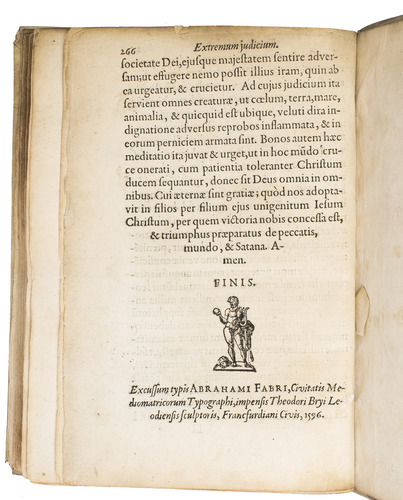 266 Extremum judicium.
societate Dei, ejusque majestatem sentire adver-
sam; ut effugere nemo possit illius iram, quin ab
ea urgeatur, & crucietur. Ad cujus judicium ita
servient omnes creaturæ, ut cœlum, terra, mare,
animalia, & quicquid est ubique, veluti dira in-
dignatione adversus reprobos inflammata, & in
eorum perniciem armata sint. Bonos autem hæc
meditatio ita juvat & urget, ut in hoc mūdo cru-
ce onerati, cum patientia toleranter Christum
ducem sequantur, donec sit Deus omnia in om-
nibus. Cui æternæ sint gratiæ; quòd nos adopta-
vit in filios per filium ejus unigenitum Iesum
Christum, per quem victoria nobis concessa est,
& triumphus præparatus de peccatis,
mundo, & Satana. A-
men.
FINIS.
Excussum typis ABRAHAMI FABRI, Civitatis Me-
diomatricorum Typographi, impensis Theodori Bryi Le-
odiensis sculptoris, Francfurdiani Civis, 1596.